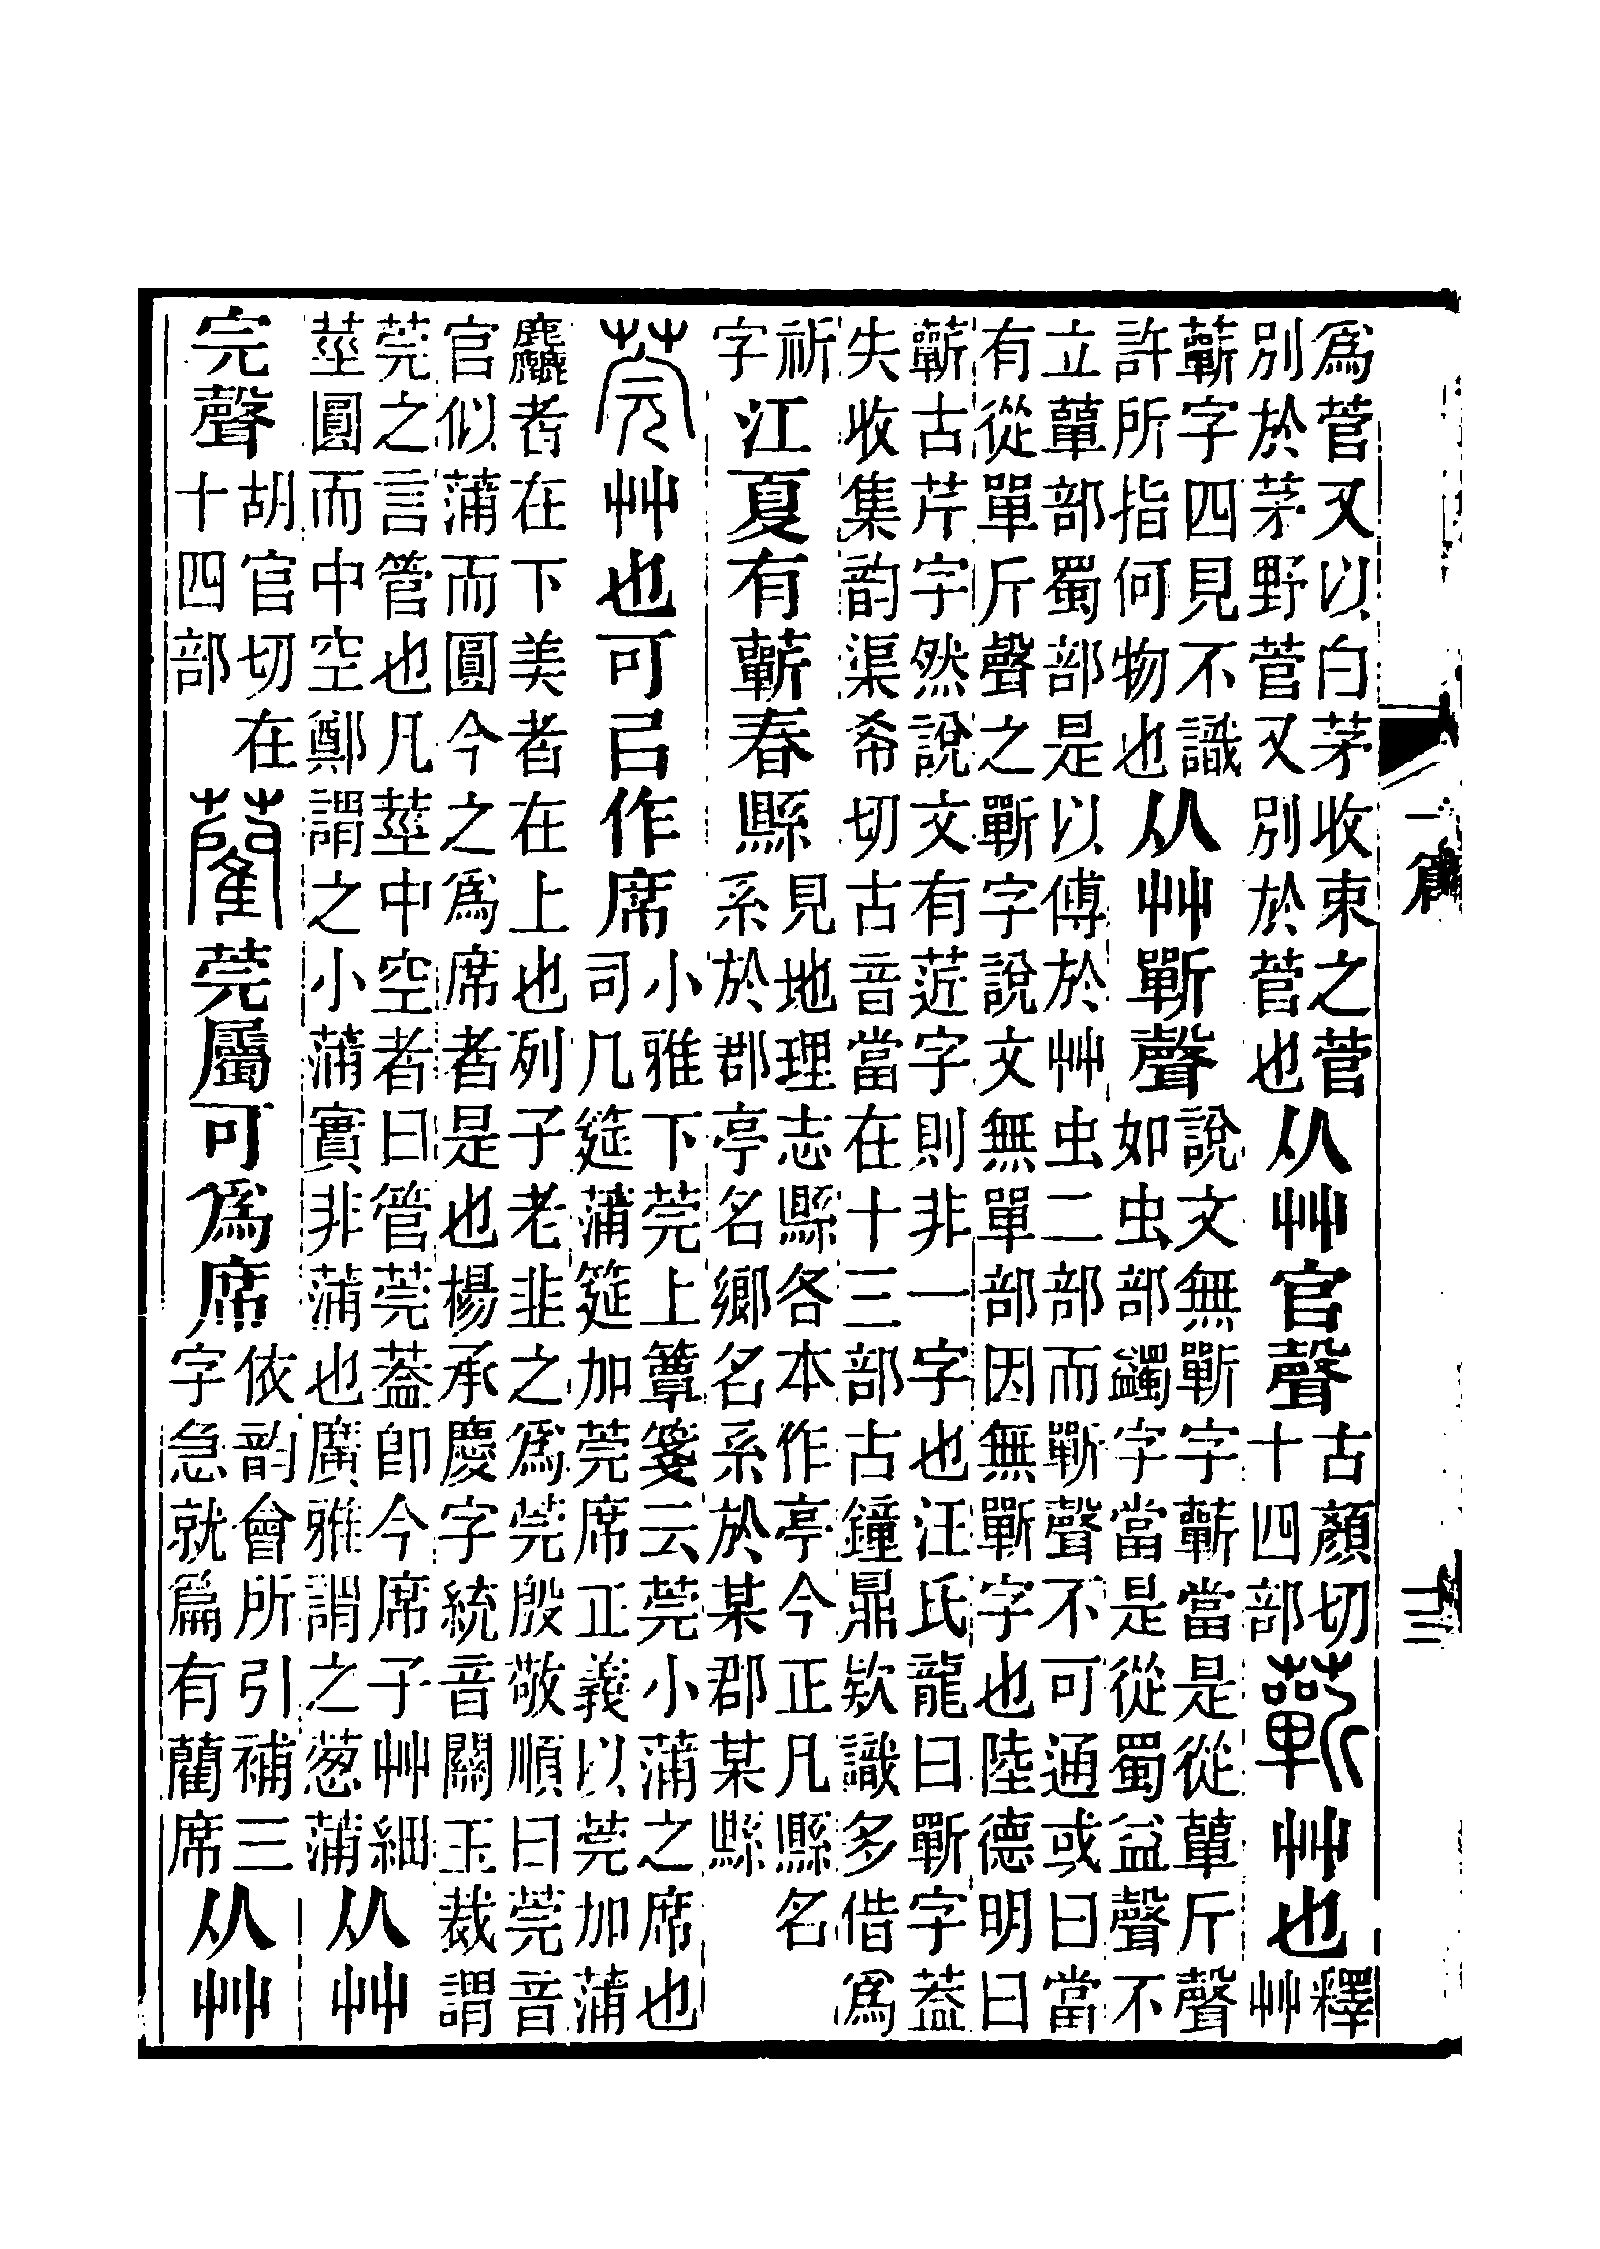 爲菅又以白茅收束之菅別於茅野菅又別於菅也从艸官聲古顏切十四部蘄艸也釋艸
蘄字四見不識許所指何物也从艸𣂷聲說文無𣂷字蘄當是從䔬斤聲如虫部蠲字當是從蜀益聲不
立䔬部蜀部是以傅於艸虫二部而𣂷聲不可通或曰當有從單斤聲之𣂷字說文無單部因無𣂷字也陸德明曰
蘄古芹字然說文有菦字則非一字也汪氏龍曰𣂷字葢失收集韵渠希切古音當在十三部古鐘鼎欵識多借爲
祈字江夏有蘄春縣見地理志縣各本作亭今正凡縣名系於郡亭名鄉名系於某郡某縣
莞艸也可㠯作席小雅下莞上簟箋云莞小蒲之席也司几筵蒲筵加莞席正義以莞加蒲
麤者在下美者在上也列子老韭之爲莞殷敬順曰莞音官似蒲而圓今之爲席者是也楊承慶字統音關玉裁謂
莞之言管也凡莖中空者曰管莞葢卽今席子艸細莖圓而中空鄭謂之小蒲實非蒲也廣雅謂之葱蒲从艸
完聲胡官切在十四部藺莞屬可爲席依韵會所引補三字急就篇有藺席从艸
一篇